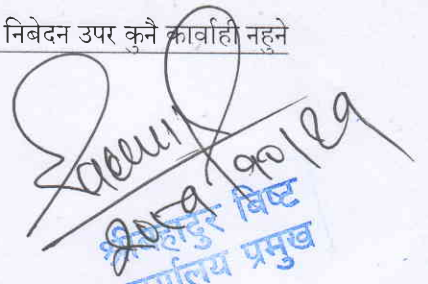 निबेदन उपर कुनै कार्वाही नहुने
२०८१/१०/२१
बहादुर बिष्ट
कार्यालय प्रमुख